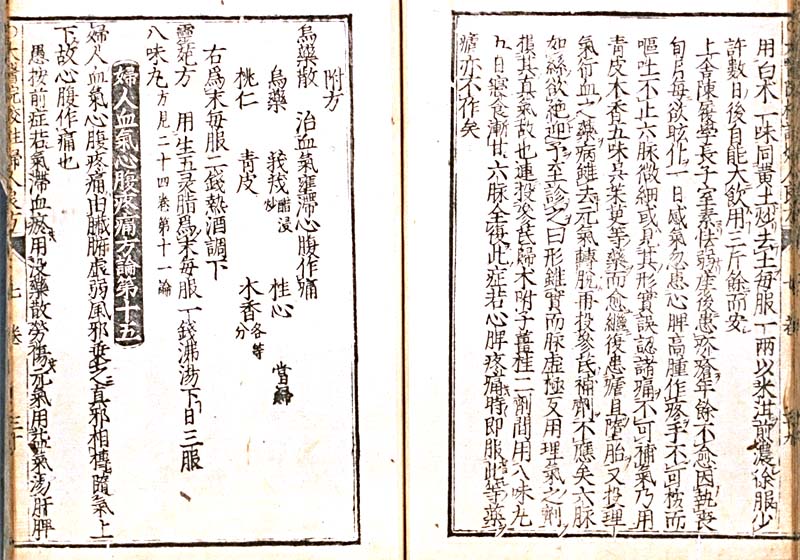 用白朮一味同黄土炒去土每服一兩以米泔煎濃徐服少
許數日後自能大飲用三斤餘而安
上舍陳履學長子室素怯弱産後患疥瘡年餘不愈因執喪
旬月每欲眩仆一日感氣忽患心脾高腫作疼手不可按而
嘔吐不止六脉微細或見其形實誤認諸痛不可補氣乃用
青皮木香五味吳茱萸等藥而愈繼復患瘧且墮胎又投理
氣行血之藥病雖去元氣轉脱再投參芪補劑不應矣六脉
如絲欲絶迎予至診之曰形雖實而脉虛極又用理氣之劑
損其真氣故也連投參芪歸朮附子薑桂二劑間用八味丸
五日寢食漸甘六脉全復此症若心脾疼痛時即服此等藥
瘧亦不作矣
附方
烏藥散 治血氣壅滯心腹作痛
烏藥 莪茂醋浸炒 桂心 當歸
桃仁 青皮 木香各等分
右爲末每服二錢熱酒調下
靈菀方 用生五灵脂爲末每服一錢沸湯下日三服
八味丸方見二十四卷第十一論
婦人血氣心腹疼痛方論第十五
婦人血氣心腹疼痛由臟腑虛弱風邪乗之真邪相搏隨氣上
下故心腹作痛也
愚按前症若氣滯血瘀用没藥散勞傷元氣用益氣湯肝脾